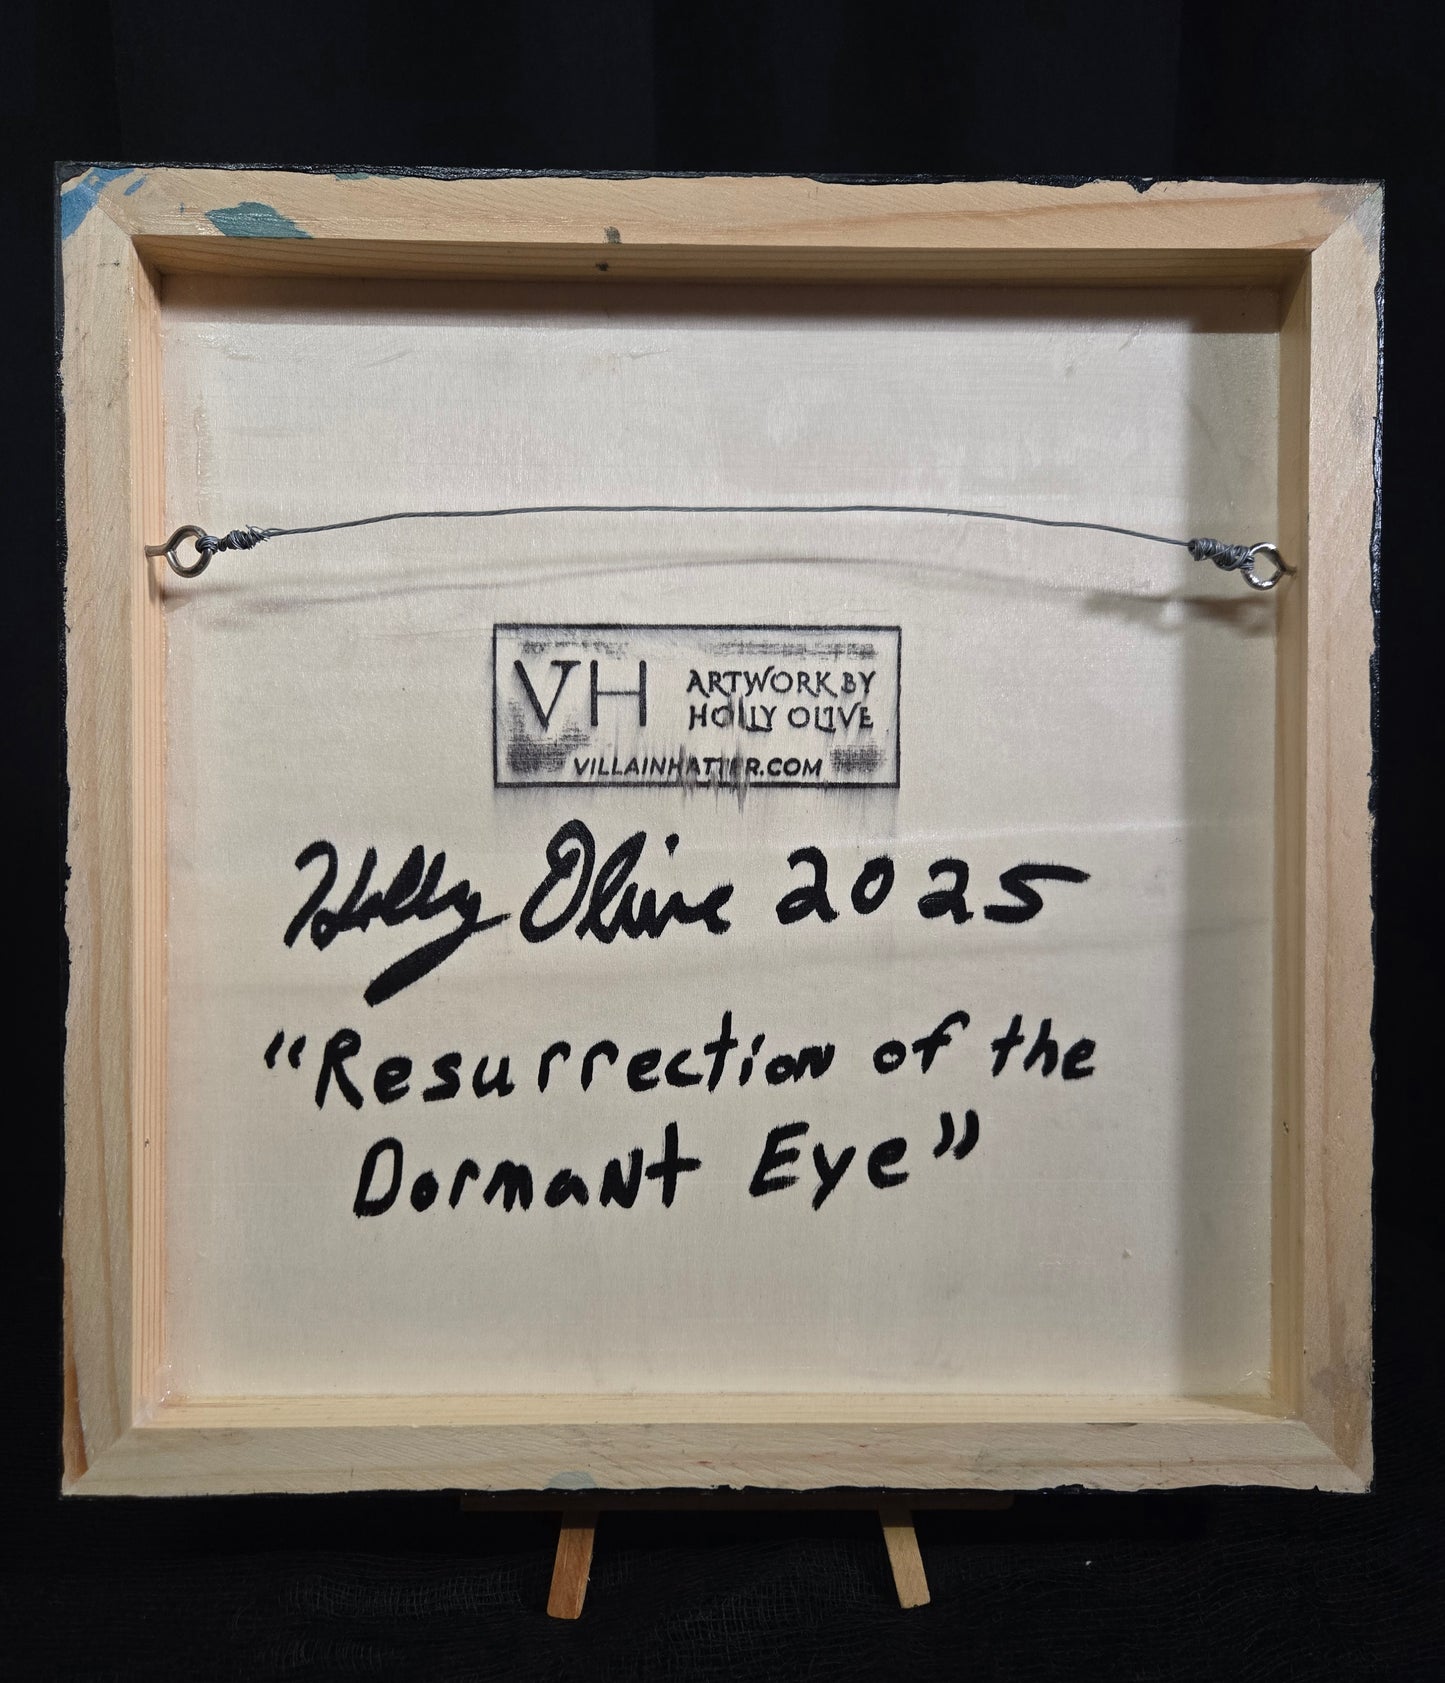 VH
ARTWORK BY
HOLLY OLIVE
VILLAINHATTER.COM
Holly Olive 2025
"Resurrection of the
Dormant Eye"